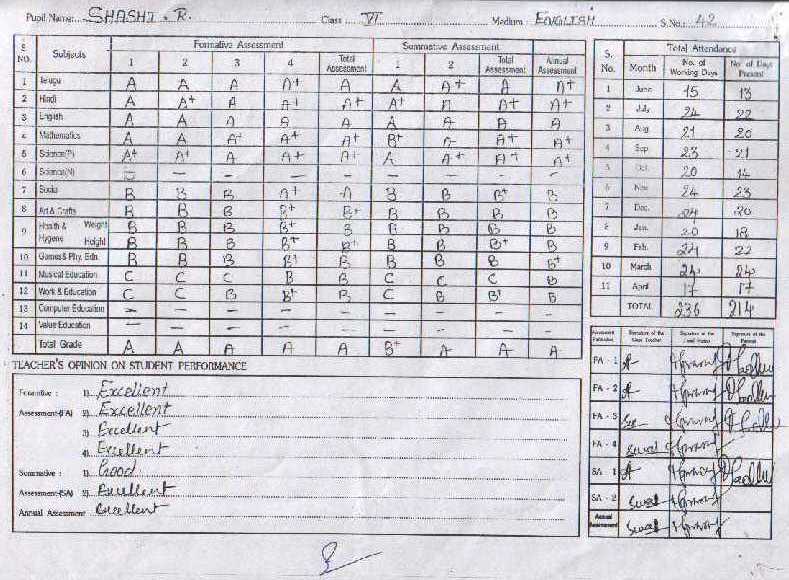 Pupil Name: SHASHI . R. Class VI Medium ENGLISH S.No.: 42
S. NO. Subjects Formative Assessment Summative Assessment
1 2 3 4 Total Assessment 1 2 Total Assessment Annual Assessment
1 Telugu A A A A+ A A A+ A A+
2 Hindi A A+ A A+ A+ A+ A A+ A+
3 English A A A A A A A A A
4 Mathematics A A A+ A+ A+ B+ A A+ A+
5 Science(P) A+ A+ A A+ A+ A A+ A+ A+
6 Science(N) – – – – – – – – –
7 Social B B B A+ A B B B+ B
8 Art & Crafts B B B B+ B+ B B B B
9 Health & Hygiene Weight B B B B+ B B B B B
Height B B B B+ B+ B B B+ B
10 Games & Phy. Edn. B B B B+ B B B B B+
11 Musical Education C C C B B C C C B
12 Work & Education C C B B+ B C B B+ B
13 Computer Education – – – – – – – – –
14 Value Education – – – – – – – – –
Total Grade A A A A A B+ A A A
S. No. Month Total Attendance
No. of Working Days No. of Days Present
1 June 15 13
2 July 24 22
3 Aug 21 20
4 Sep 23 21
5 Oct. 20 14
6 Nov. 24 23
7 Dec. 24 20
8 Jan. 20 18
9 Feb. 24 22
10 March 24 24
11 April 17 17
TOTAL 236 214
TEACHER'S OPINION ON STUDENT PERFORMANCE
Formative : 1) Excellent
Assessment-(FA) 2) Excellent
3) Excellent
4) Excellent
Summative : 1) Good
Assessment-(SA) 2) Excellent
Annual Assessment Excellent
Signature of the Class Teacher Signature of the Head Master Signature of the Parent
FA - 1
FA - 2
FA - 3
FA - 4
SA - 1
SA - 2
Annual Assessment